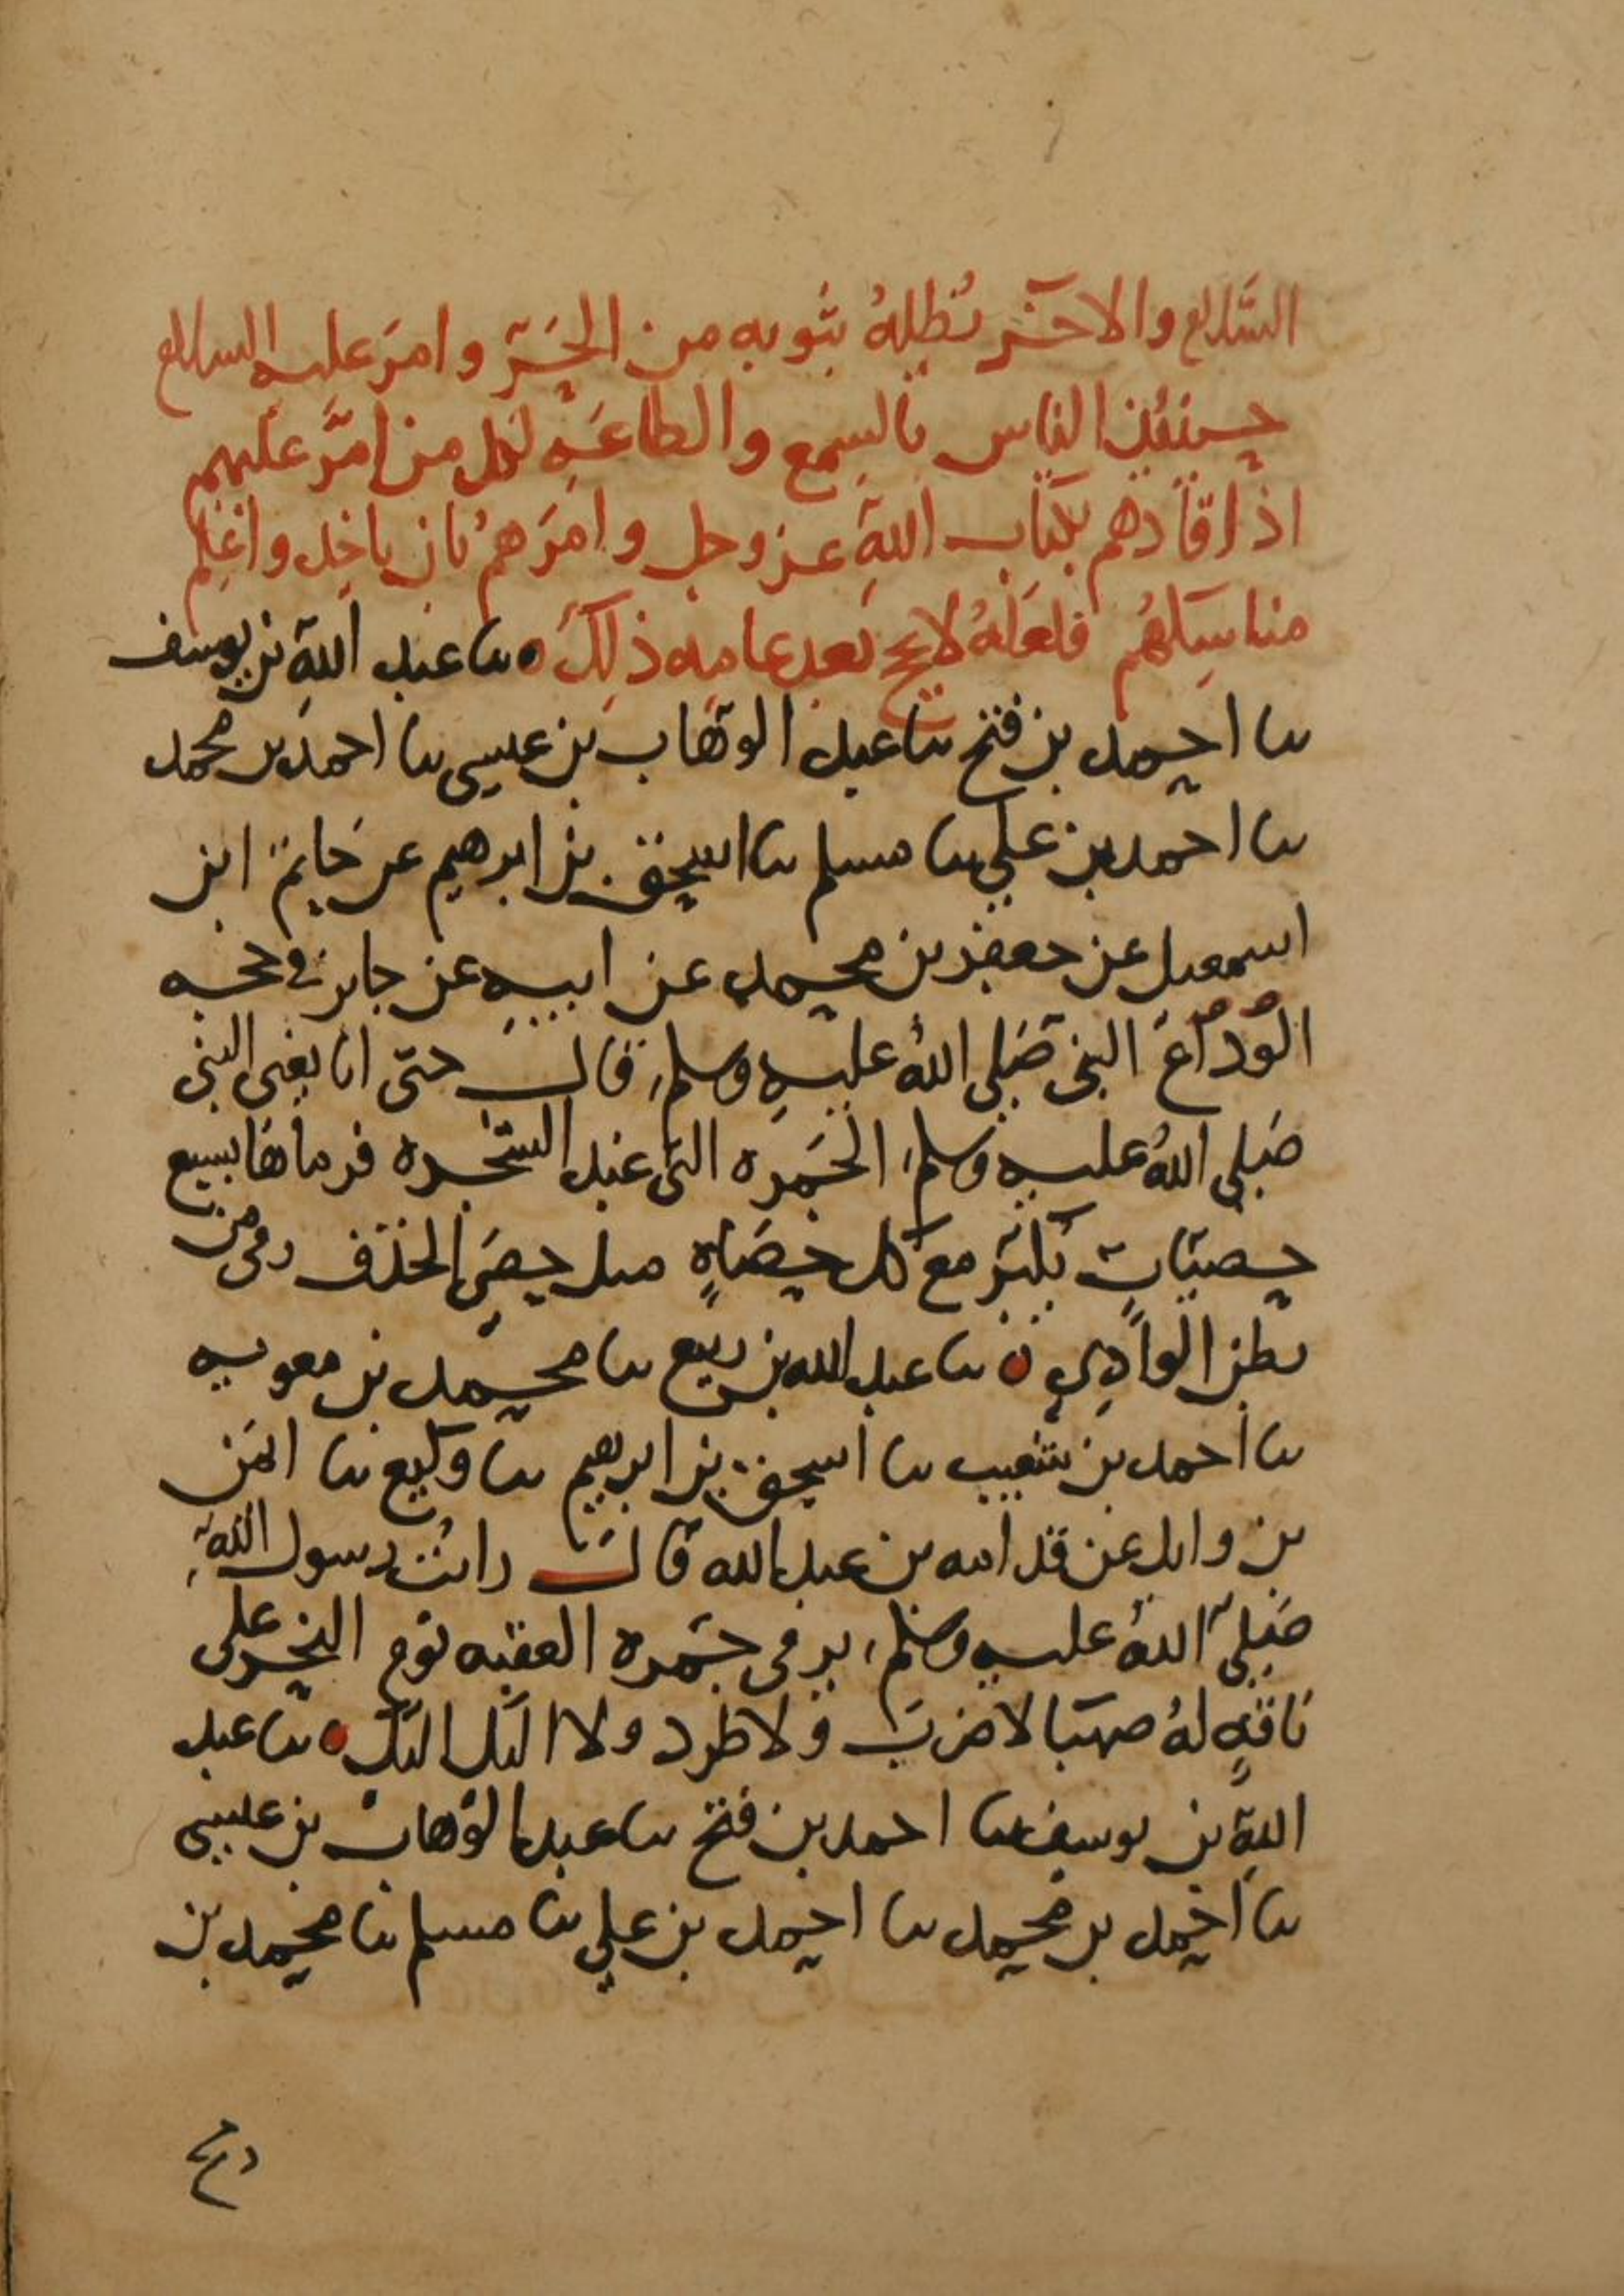 السلام والاخر يُظلهُ بثوبه من الحَرّ وامرَ عليه السلام
حينئذ الناس بالسمع والطاعَهِ لكل من امَّر عليهم
اذا قادهم بكتاب اللهِ عز وجل وامَرهمُ بان ياخذ واعنه
مناسِكهُم فلعلهُ لا يحج بعد عامه ذلِكَ ٥ نا عبد اللهِ بن يوسف
نا احمد بن فتح نا عبد الوهاب بن عيسى نا احمد بن محمد
نا احمد بن علي نا مسلم نا اسحق بن ابرهيم عن حاتم ابن
اسمعيل عن جعفر بن محمد عن ابيهِ عن جابر في حجه
الوداع النبي صَلى اللهُ عليهِ وسلم قال حتى اتا يعنى النبي
صَلى اللهُ عليه وسلم الجَمره التي عند الشجره فرماها بسبع
حصيّاتٍ يُكبّر مع كل حصَاهٍ مثل حصَى الخذف رمى من
بطن الوادِي ٥ نا عبد الله بن ربيع نا محمد بن معويه
نا احمد بن شعيب نا اسحق بن ابرهيم نا وكيع نا ايمَن
بن وابل عن قدامه بن عبد الله قالَ رايتُ رسول اللهِ
صَلى اللهُ عليه وسلم يرمى جَمره العقبه يوم النحر على
ناقهٍ لهُ صهبا لا ضربَ ولا طرد ولا اليك اليك ٥ نا عبد
اللهِ بن يوسف نا احمد بن فتح نا عبد الوهاب بن عيسى
نا احمد بن محمد نا احمد بن علي نا مسلم نا محمد بن